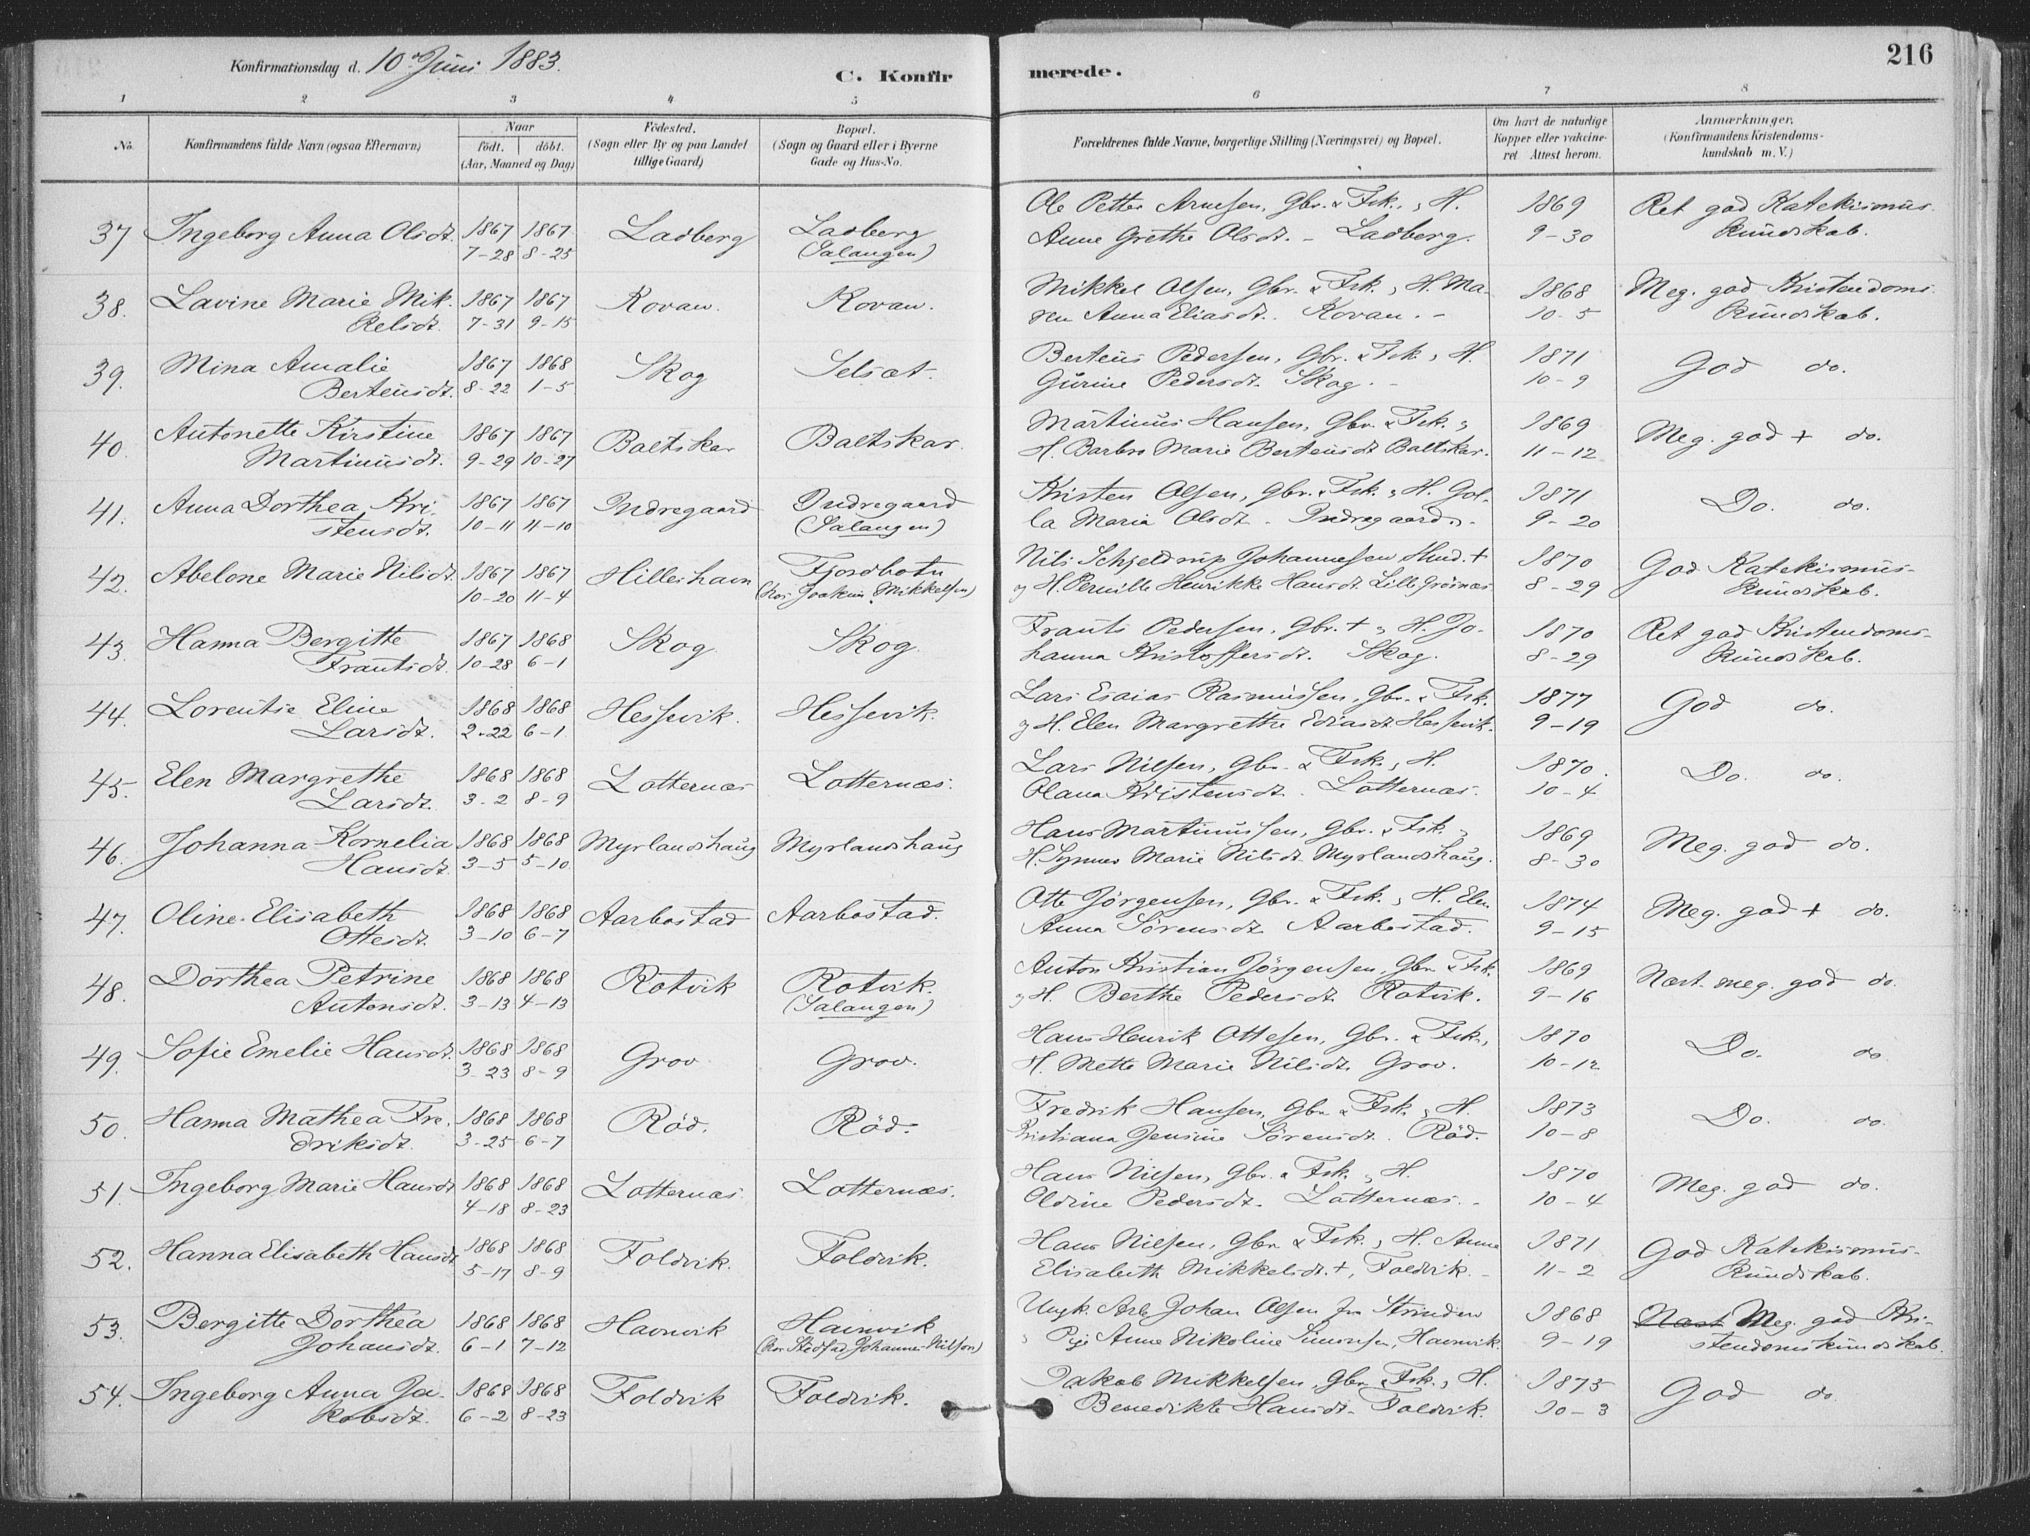 Konfirmationsdag d. 10de Juni 1883.
C. Konfirmerede.
216
1 2 3 4 5 6 7 8
No.
Konfirmandens fulde Navn (ogsaa Efternavn)
Naar
födt. döbt.
(Aar, Maaned og Dag)
Födested.
(Sogn eller By og paa Landet
tillige Gaard)
Bopæl.
(Sogn og Gaard eller i Byerne
Gade og Hus-No.
Forældrenes fulde Navne, borgerlige Stilling (Næringsvei) og Bopæl.
Om havt de naturlige
Kopper eller vakcine-
ret Attest herom.
Anmærkninger,
(Konfirmandens Kristendoms-
kundskab m. V.)
37 Ingeborg Anna Olsdt. 1867 1867 Ladberg Ladberg Ole Petter Arnesen, Gbr. & Fsk., H. 1869 Ret god Katekismus
7-28 8-25 (Salangen) Anne Grethe Olsdt. - Ladberg. 9-30 kundskab.
38. Lavine Marie Mik- 1867 1867 Kovan. Kovan. Mikkel Olsen, Gbr. & Fsk., H. Ma- 1868 Meg. god Kristendoms
kelsdt. 7-31 9-15 ren Anna Eliasdt. Kovan. - 10-5 kundskab.
39. Mina Amalie 1867 1868 Skog Selsæt. Berteus Pedersen, Gbr. & Fsk., H. 1871 God do.
Berteusdt. 8-22 1-5 Gurine Pedersdt. Skog. - 10-9
40. Antonette Kirstine 1867 1867 Baltskar Baltskar. Martinus Hansen, Gbr. & Fsk., 1869 Meg. god + do.
Martinusdt. 9-29 10-27 H. Barbro Marie Berteusdt Baltskar. 11-12
41. Anna Dorthea Kri- 1867 1867 Indregaard Indregaard Kristen Olsen, Gbr. & Fsk., H. Gol- 1871 Do. do.
stensdt. 10-11 11-10 (Salangen) la Maria Olsdt. Indregaard. - 9-20
42. Abelone Marie Nilsdt. 1867 1867 Hilleshavn Fjordbotn Nils Schjeldrup Johannesen Hmd. + 1870 God Katekismus-
10-20 11-4 (hos Joakim Mikkelsen) og H. Pernille Henrikke Hansdt Lille Grøsnæs 8-29 kundskab.
43. Hanna Bergitte 1867 1868 Skog Skog Frants Pedersen, Gbr. +, H. Jo- 1870 Ret god Kristendoms-
Frantsdt. 10-28 6-1 hanna Kristoffersdt. Skog. 8-29 kundskab.
44. Lorentse Eline 1868 1868 Hessevik. Hessevik. Lars Esaias Rasmussen, Gbr. & Fsk. 1877 God do.
Larsdt. 2-22 6-1 og H. Elen Margrethe Eliasdt Hessevik. 9-19
45. Elen Margrethe 1868 1868 Lotternæs Lotternæs. Lars Nilsen, Gbr. & Fsk., H. 1870. Do. do.
Larsdt. 3-2 8-9 Olana Kristensdt. Lotternæs. 10-4
46. Johanna Kornelia 1868 1868 Myrlandshaug Myrlandshaug Hans Martinussen, Gbr. & Fsk., 1869 Meg. god do.
Hansdt. 3-5 5-10 H. Synnes Marie Nilsdt. Myrlandshaug. 8-30
47. Oline Elisabeth 1868 1868 Aarbostad Aarbostad. Otte Jørgensen, Gbr. & Fsk., H. Elen 1874 Meg. god + do.
Ottesdt. 3-10 6-7 Anna Sørensdt. Aarbostad. 9-15
48. Dorthea Petrine 1868 1868 Rotvik Rotvik. Anton Kristian Jørgensen, Gbr. & Fsk. 1869 Næst. meg. god do.
Antonsdt. 3-13 4-13 (Salangen) og H. Berthe Pedersdt. Rotvik. 9-16
49. Sofie Emelie Hansdt. 1868 1868 Grov Grov. Hans Henrik Ottesen, Gbr. & Fsk., 1870 Do. do.
3-23 8-9 H. Mette Marie Nilsdt. Grov. 10-12
50. Hanna Mathea Fre- 1868 1868 Röd. Röd. Fredrik Hansen, Gbr. & Fsk., H. 1873 Do. do.
driksdt. 3-25 6-7 Kristiana Jensine Sørensdt. Röd. 10-8
51. Ingeborg Marie Hansdt 1868 1868 Lotternæs Lotternæs. Hans Nilsen, Gbr. & Fsk., H. 1870 Meg. god do.
4-18 8-23 Oldine Pedersdt. Lotternæs. - 10-4
52. Hanna Elisabeth Hansdt 1868 1868 Foldvik. Foldvik. Hans Nilsen, Gbr. & Fsk., H. Anne 1871 God Katekismus-
5-17 8-9 Elisabeth Mikkelsdt. +, Foldvik. - 11-2 kundskab.
53. Bergitte Dorthea 1868 1868 Havnvik Havnvik Ungk. Arb. Johan Olsen fra Strinden 1868 Næst Meg. god Kri-
Johansdt. 6-1 7-12 (hos Stedfad. Johannes Nilsen) Pige Anne Nikoline Simonsen, Havnvik. 9-19 stendomskundskab.
54. Ingeborg Anna Ja- 1868 1868 Foldvik Foldvik. Jakob Mikkelsen, Gbr. Fsk., H. 1875 God do.
kobsdt. 6-2 8-23 Benedikte Hansdt. Foldvik. 10-3